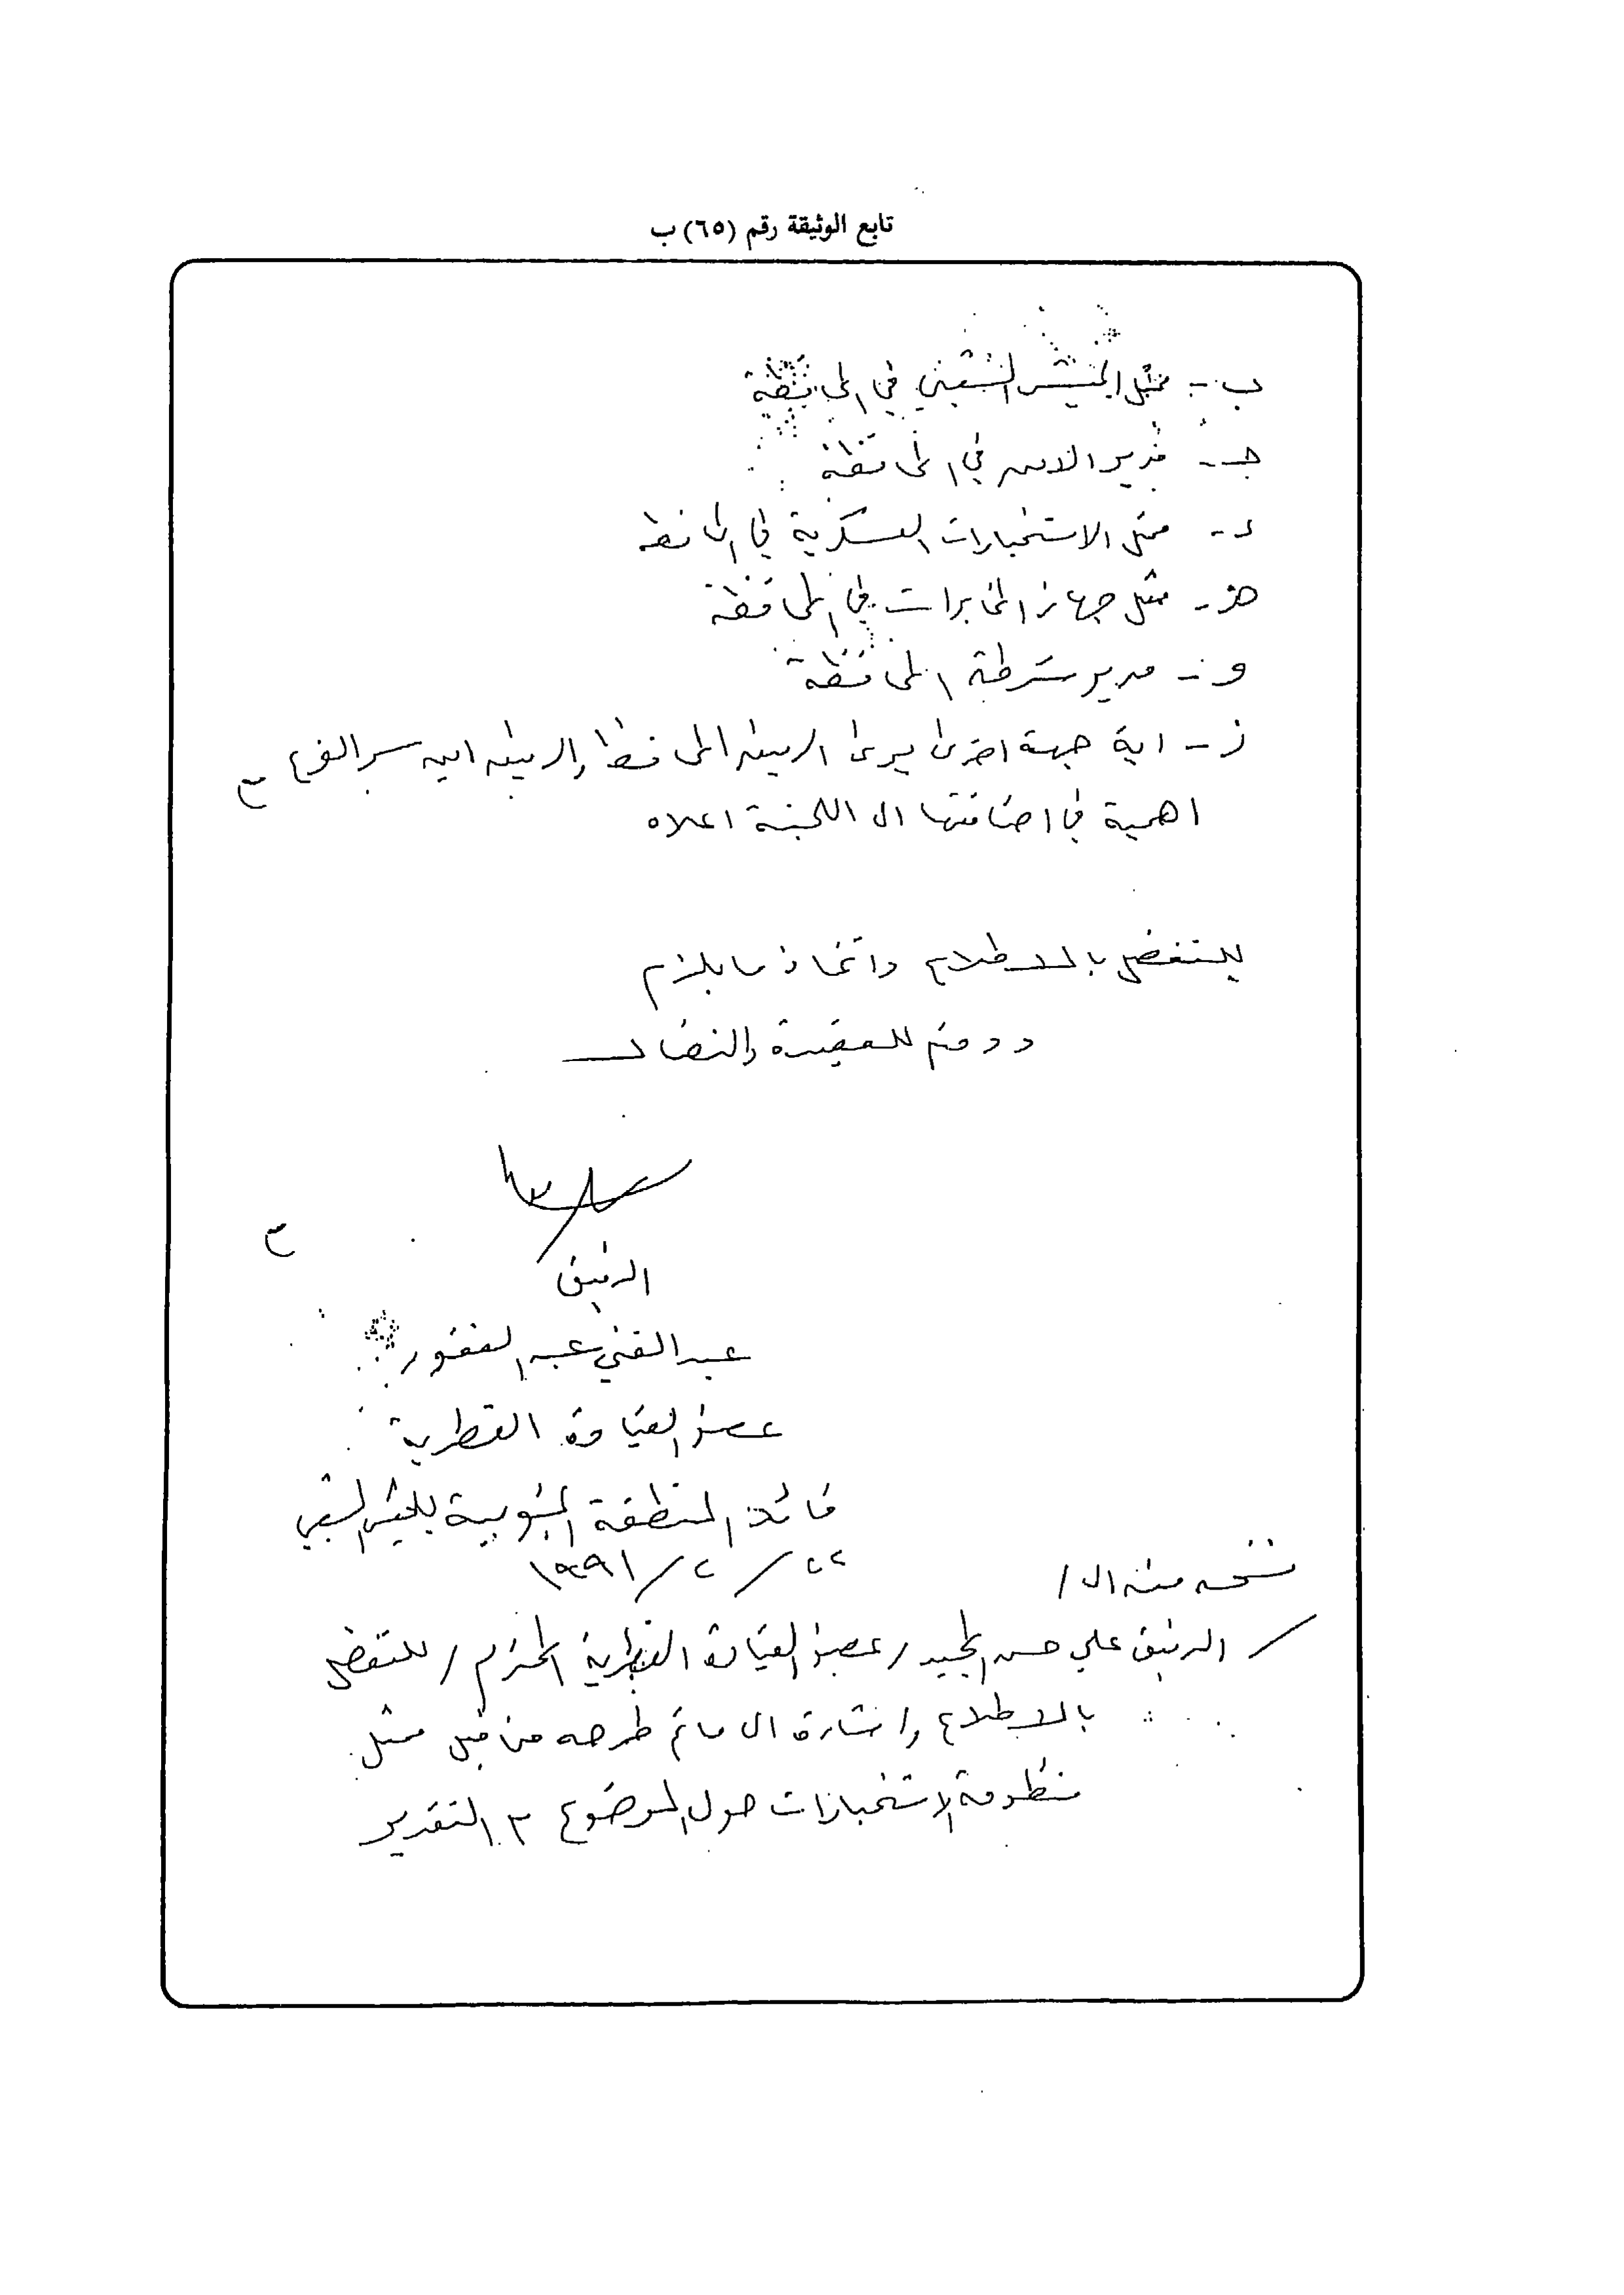 تابع الوثيقة رقم (٦٥) ب
ب - ممثل الجيش الشعبي في المحافظة
جـ - مدير الامن في المحافظة
د - ممثل الاستخبارات العسكرية في المحافظة
هـ - ممثل جهاز المخابرات في المحافظة
و - مدير شرطة المحافظة
ز - اية جهة اخرى يرى الرفيق المحافظ والرفيق امين سر الفرع
اهمية في اضافتها الى اللجنة اعلاه
للتفضل بالاطلاع واتخاذ ما يلزم
ودمتم للعقيدة والنضال
الرفيق
عبد الغني عبد الغفور
عضو القيادة القطرية
قائد المنطقة الجنوبية للجيش الشعبي
٢٢ / ٢ / ١٩٩١
نسخه منه الى /
/ الرفيق علي حسن المجيد / عضو القيادة القطرية المحترم / للتفضل
بالاطلاع واشارة الى ماتم طرحه من قبل ممثل
منظومة الاستخبارات حول الموضوع مع التقدير